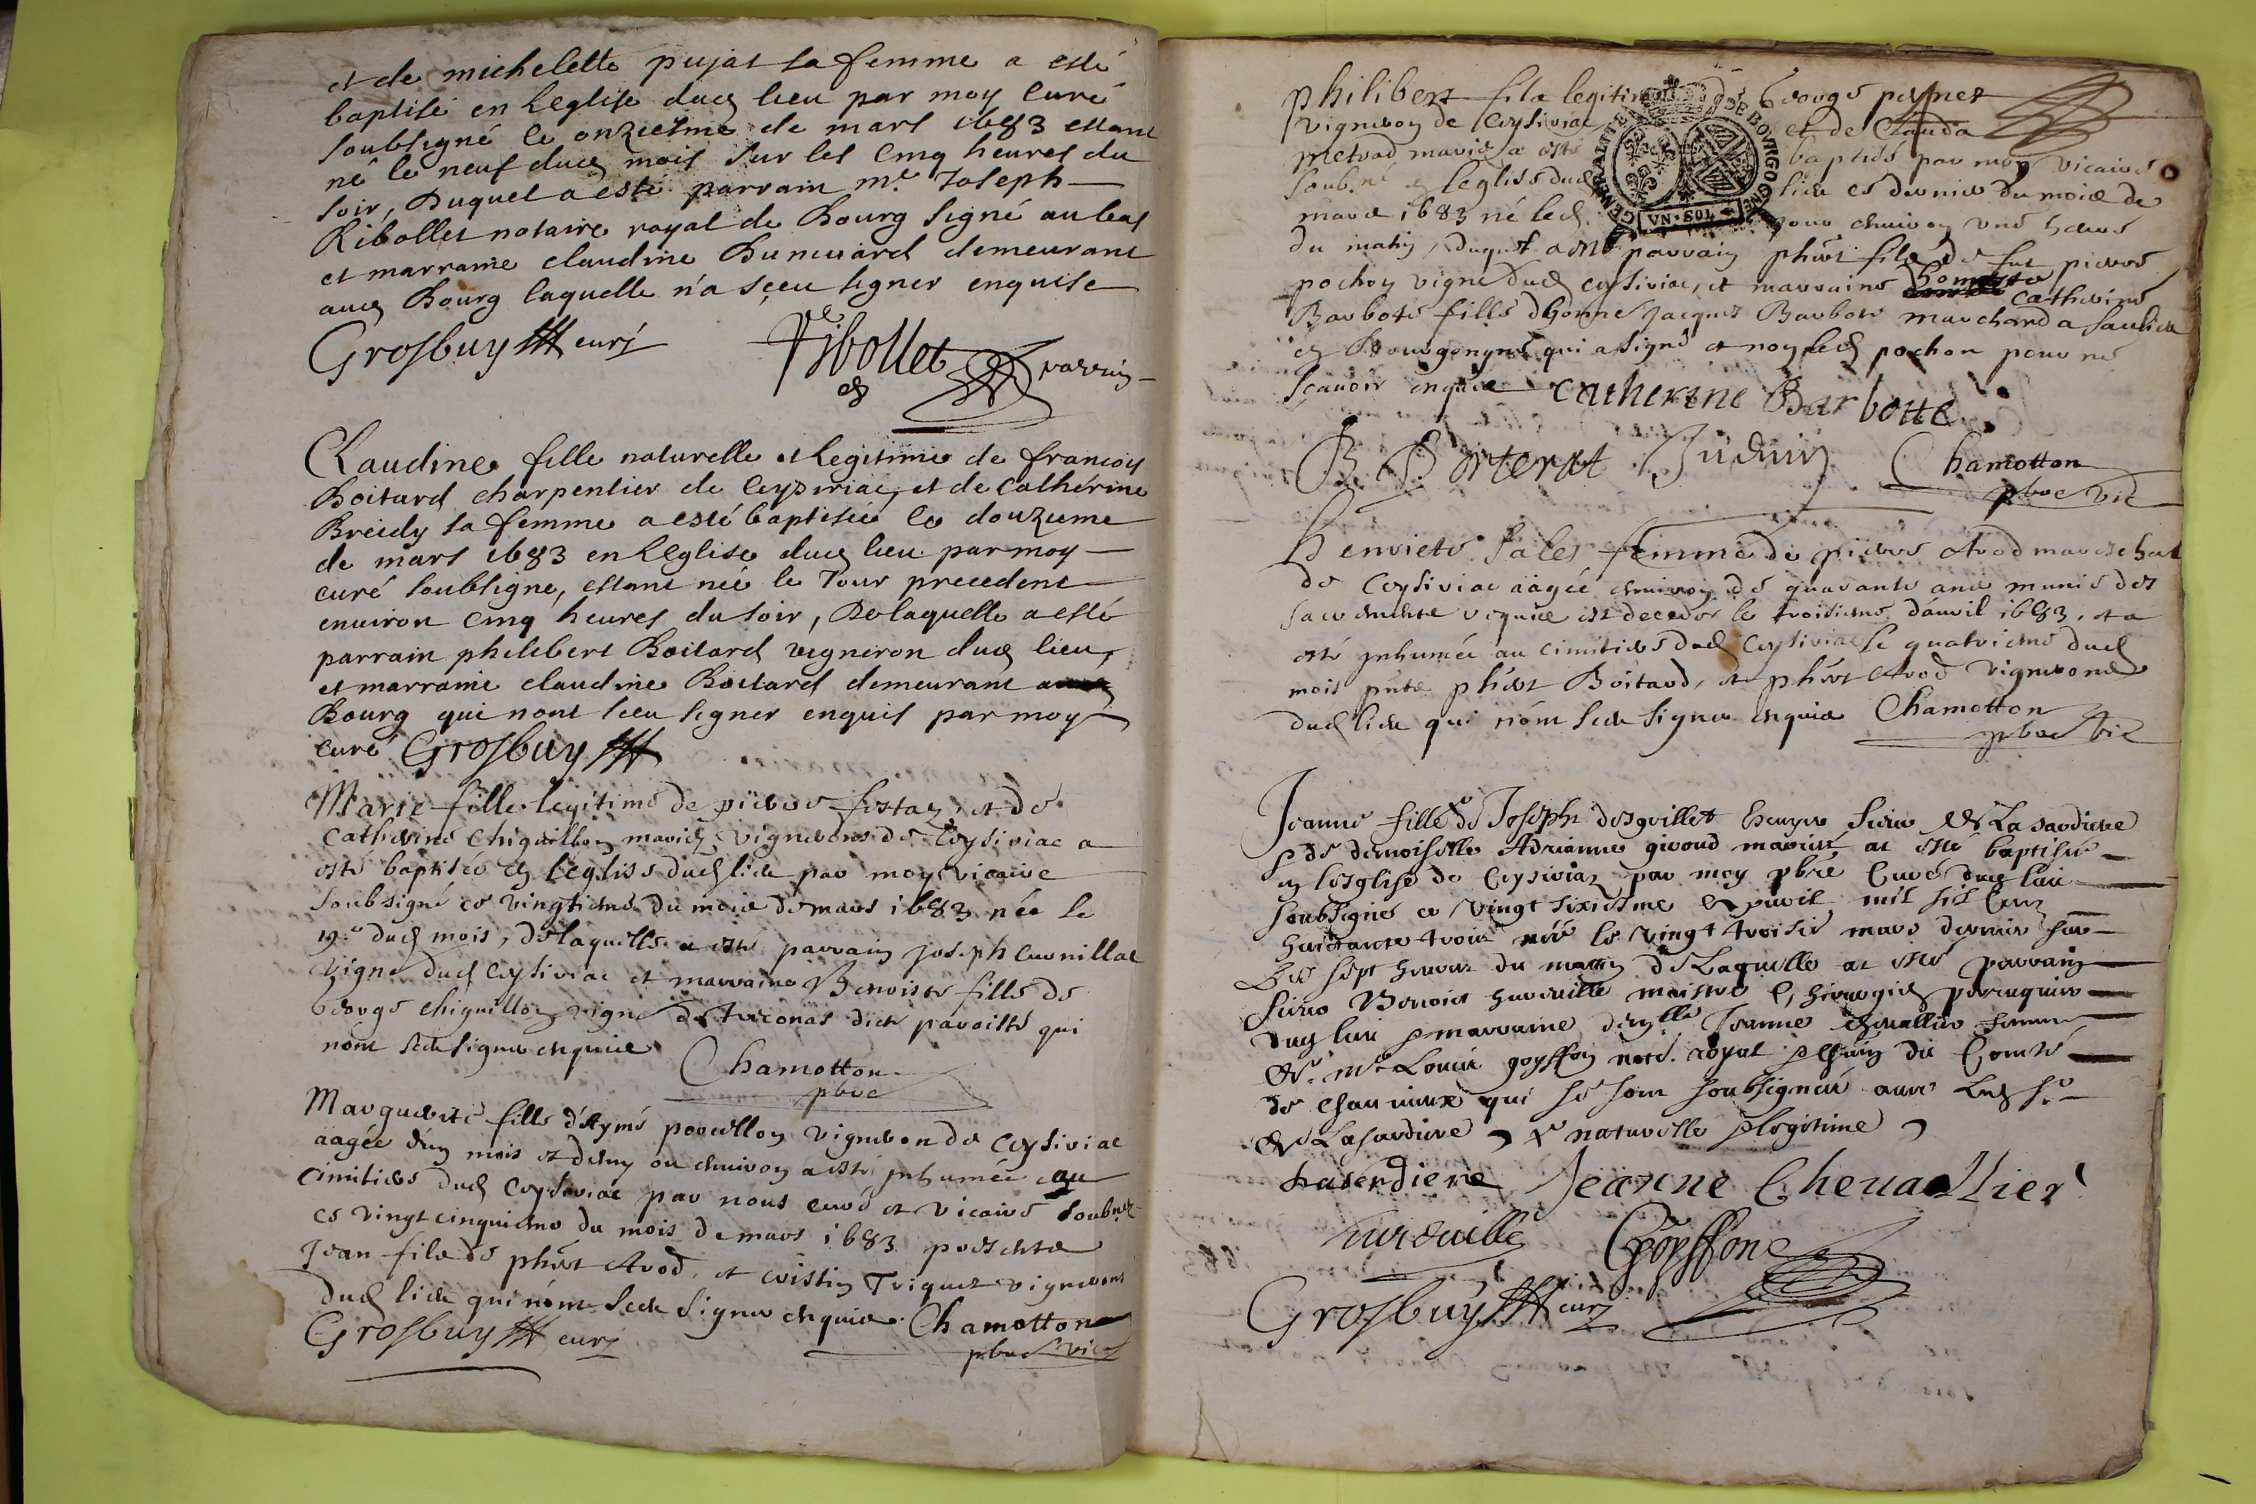 et de michelette pujat sa femme a esté
baptisé en Leglise dud lieu par moy curé
soubsigné le onziesme de mars 1683 estant
né le neuf dud mois sur les cinq heures du
soir, Duquel a esté parrain mr. Joseph
Ribollet notaire royal de Bourg signé au bas
et marraine claudine demeurant
aud Bourg laquelle n'a sçeu signer enquise
Grosbuy curé Ribollet parrain
Claudine fille naturelle et legitime de francois
Boitard charpentier de Ceyziriac, et de Catherine
Breidy sa femme a esté baptisée le douzieme
de mars 1683 en Leglise dud lieu par moy
curé soubsigne, estant née le Jour precedent
environ cinq heures du soir, De laquelle a esté
parrain philibert Boitard vigneron dud lieu,
et marraine claudine Boitard demeurant
Bourg qui nont sceu signer enquis par moy
curé Grosbuy
Marie fille legitime de pierre festaz et de
Catherine Chiquillon mariés vignerons de Ceysiriac a
esté baptisée en leglise dud lieu par moy vicaire
soubsigné ce vingtiesme du mois de mars 1683 née le
19e dud mois, de laquelle a esté parrain joseph Cuvnillat
vigne dud Ceysiriac et marraine Benoiste fille de
George chiquillon vigne de Treconas dicte paroisse qui
nont sceu signer enquis Chamotton
pbre
Marguerite fille d'Aymé vigneron de Ceysiriac
aagée d'un mois et demy ou environ a esté inhumée au
cimitiere dud Ceysiriac par nous curé et vicaire soubnez
ce vingt cinquiesme du mois de mars 1683 presents
Jean fils de phért Avod, et cristin Triquet vignerons
dud lieu qui nont sceu signer enquis. Chamotton
Grosbuy curé pbre vic
Philibert fils legitime de George
vigneron de Ceysiriac et de Clauda
mariés a esté baptisé par moy vicaire
soub.né en leglise dud lieu ce dernier du mois de
mars 1683 né led jour environ une heure
du matin, duquel a esté parrain phért fils de fut pierre
pochon vigne dud ceysiriac, et marraine honneste Catherine
Barbote fille d'honne jacques Barbote marchand a Saulieu
en Bourgongne qui a signé et non led pochon pour ne
scavoir enquis Catherine Barbotte
B. Borterat Chamotton
pbre vic
GENERALITE DE BOVRGOGNE
VN·SOL
Henriete Sales femme de pierre Avod mareschal
de Ceysiriac aagée environ de quarante ans munie des
sacrements requis est decedee le troisiesme d'avril 1683, et a
esté inhumée au cimitiere dud Ceysiriac le quatriesme dud
mois pnts phért Boitard, et phért Avod vignerons
dud lieu qui nont sceu signer enquis Chamotton
pbre vic
Jeanne fille de Joseph desgoillet Escuyer sieur de La sardiere
et de demoiselle Adrianne giroud mariés at esté baptisée
en lesglise de Ceysiriaz par moy pbre Curé dud lieu
soubsigné ce vingt sixiesme apvril mil six cens
huictante trois née le vingt troisie mars dernier sur
Les sept heures du mattin de Laquelle at esté parrain
sieur Benoict maistre chirurgien perruquier
dud lieu et marraine Jeanne chevallier femme
de Me Louis goyffon notre. royal du Comté
de Chau qui se sont soubsignés avec Led sr
de Lasardiere, et naturelle et legitime
Lasardiere Jeanne Chevallier
Goyffon
Grosbuy curé